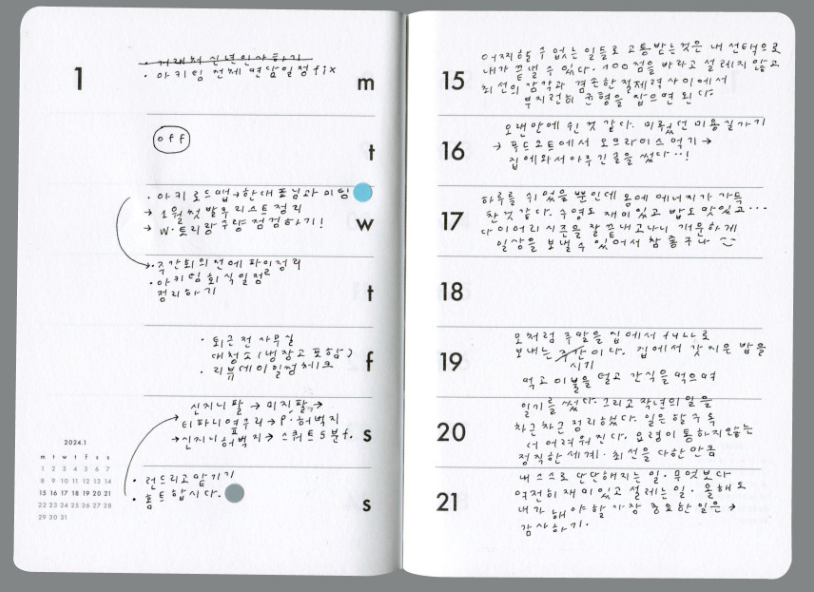 1
· 거래처 신년인사하기
· 아키팀 전체 면담일정 fix
m
off
t
· 아키로드맵 → 한대표님과 미팅
→ 1월 첫 발주 리스트 정리
→ W·토리랑 수량 점검하기!
w
· 주간회의 언에 파이정리
· 아키팀 회식일정
정리하기
t
· 퇴근 전 사무실
대청소 (냉장고 포함)
· 리뷰 데이일정 체크
f
신지니 팔 → 미지팔 →
티파니 허벅지
→ 신지니 허벅지 → 스쿼트 5분 f.
s
· 런드리고 맡기기
· 홈트 합시다.
s
2024.1
m t w t f s s
1 2 3 4 5 6 7
8 9 10 11 12 13 14
15 16 17 18 19 20 21
22 23 24 25 26 27 28
29 30 31
15
어찌할 수 없는 일들로 고통받는 것은 내 선택으로
내가 끝낼 수 있다. 100점을 바라고 설레지 않고
최선의 감각과 겸손한 절제력 사이에서
부지런히 균형을 잡으면 된다.
16
오랜만에 쉰 것 같다. 미뤘던 미용실가기
→ 푸드코트에서 오므라이스 먹기 →
집에 와서 아무긴 글을 썼다··!
17
하루를 쉬었을 뿐인데 몸에 에너지가 가득
찬 것 같다. 수영도 재미있고 밥도 맛있고···
다이어리 시즌을 잘 끝내고 나니 개운하게
일상을 보낼 수 있어서 참 좋구나
18
19
모처럼 주말을 집에서 full로
보내는 주간이다. 집에서 갓 지은 밥을
시기
먹고 이불을 덮고 간식을 먹으며
20
일기를 썼다. 그리고 작년의 일을
차근차근 정리했다. 일은 할수록
더 어려워진다. 요령이 통하지 않는
정직한 세계. 최선을 다한 만큼
21
내 스스로 단단해지는 일. 무엇보다
여전히 재미있고 설레는 일. 올해도
내가 해야할 가장 중요한 일은 →
감사하기.